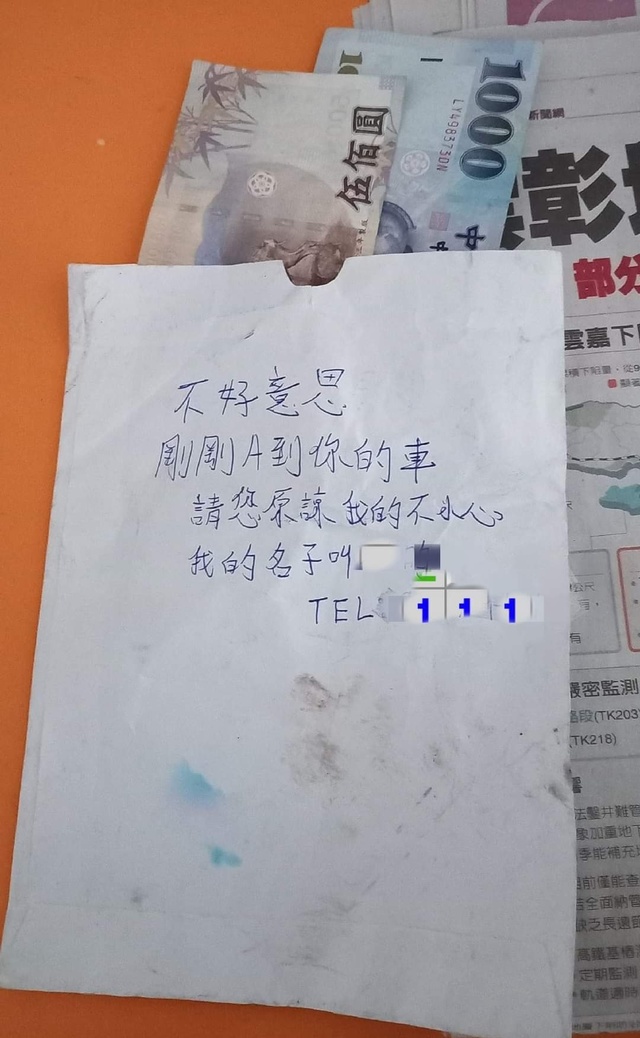 1000
LY498373DN
伍佰圓
10
中
新聞網
彰
部分
雲嘉下
不好意思
剛剛A到你的車
請您原諒我的不小心
我的名子叫
TEL 1 1 1
公尺
有,
有
嚴密監測
路段(TK203
(TK218)
法鑿井難管
象加重地下
季能補充
前僅能查
全面納管
缺乏長遠
高鐵基樁
定期監測
軌道邊